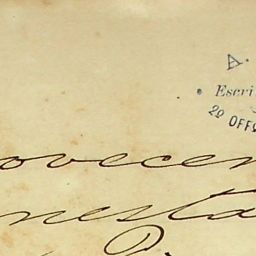 A.
Escri
2º OFF
ovecen
nesta